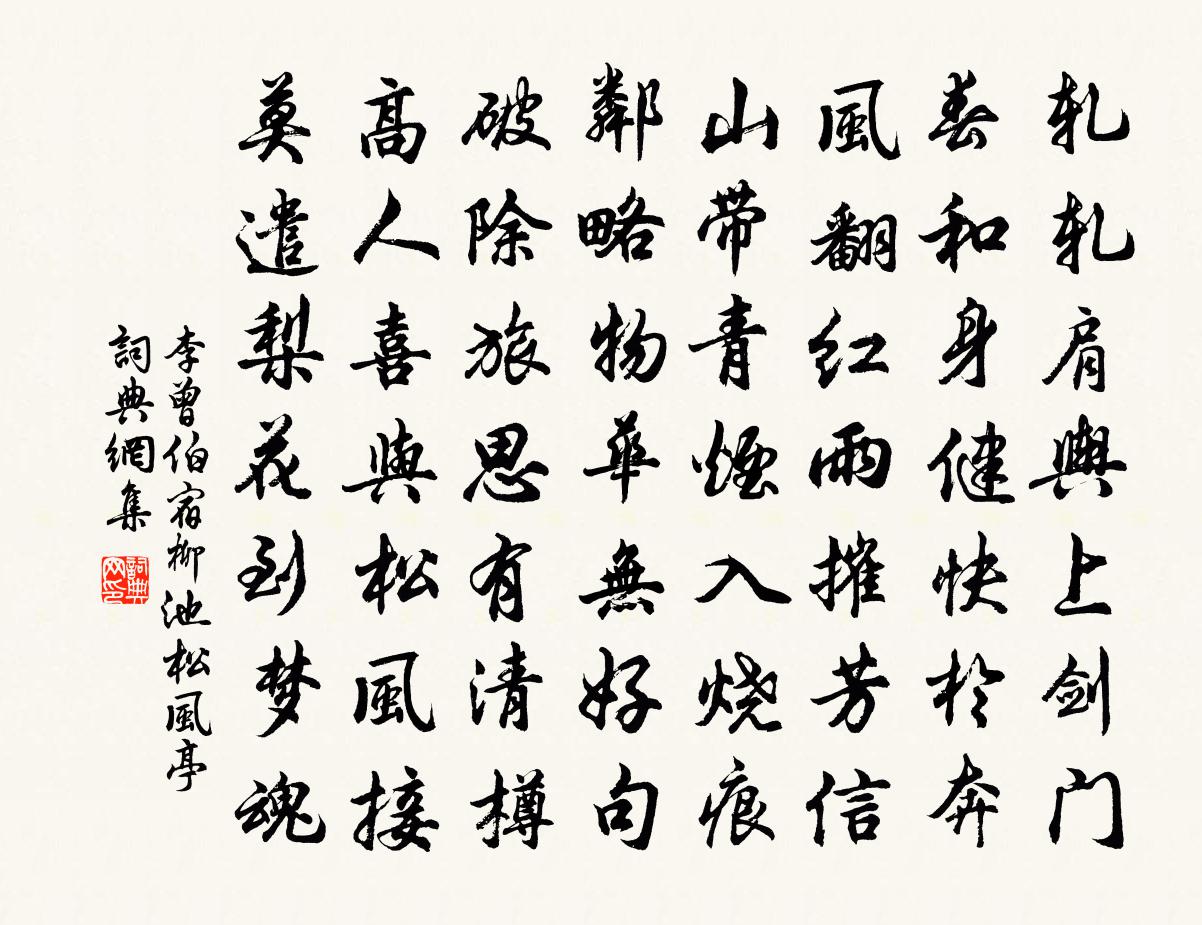 轧轧肩輿上剑门
春和身健快於奔
風翻红雨摧芳信
山带青煙入烧痕
鄰略物華無好句
破除旅思有清樽
高人喜與松風接
莫遣梨花到梦魂
李曾伯宿柳池松風亭
詞典網集
詞典网印